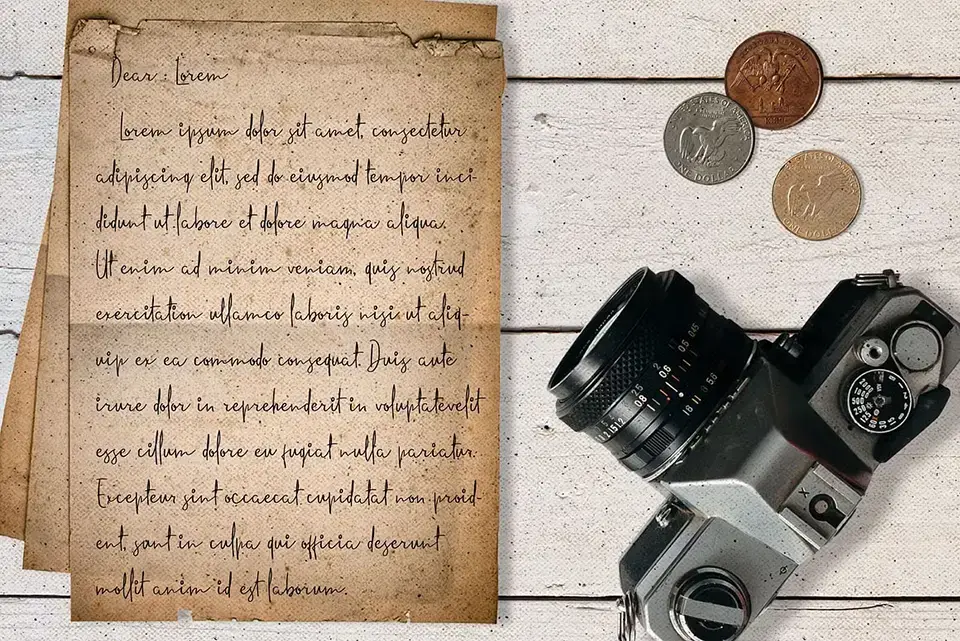 Dear : Lorem
Lorem ipsum dolor sit amet, consectetur
adipiscing elit, sed do eiusmod tempor inci-
didunt ut labore et dolore magna aliqua.
Ut enim ad minim veniam, quis nostrud
exercitation ullamco laboris nisi ut aliq-
uip ex ea commodo consequat. Duis aute
irure dolor in reprehenderit in voluptatevelit
esse cillum dolore eu fugiat nulla pariatur.
Excepteur sint occaecat cupidatat non proid-
ent, sunt in culpa qui officia deserunt
mollit anim id est laborum.
STATES OF AMERICA
ONE DOLLAR
ONE DOLLAR
X